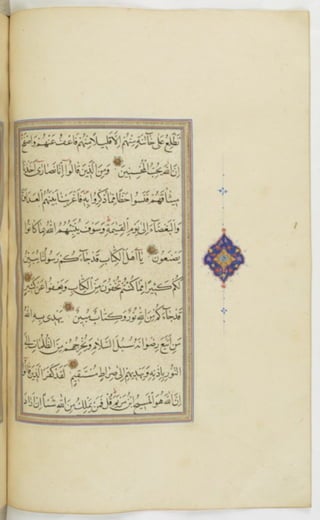 تطلع على خائنة منهم الا قليلا منهم فاعف عنهم واصفح
ان الله يحب المحسنين ومن الذين قالوا انا نصارى اخذنا
ميثاقهم فنسوا حظا مما ذكروا به فاغرينا بينهم العداوة
والبغضاء الى يوم القيمة وسوف ينبئهم الله بما كانوا
يصنعون يا اهل الكتاب قد جاءكم رسولنا يبين
لكم كثيرا مما كنتم تخفون من الكتاب ويعفوا عن كثير
قد جاءكم من الله نور وكتاب مبين يهدى به الله
من اتبع رضوانه سبل السلام ويخرجهم من الظلمات الى
النور باذنه ويهديهم الى صراط مستقيم لقد كفر الذين قالوا
ان الله هو المسيح ابن مريم قل فمن يملك من الله شيئا ان اراد